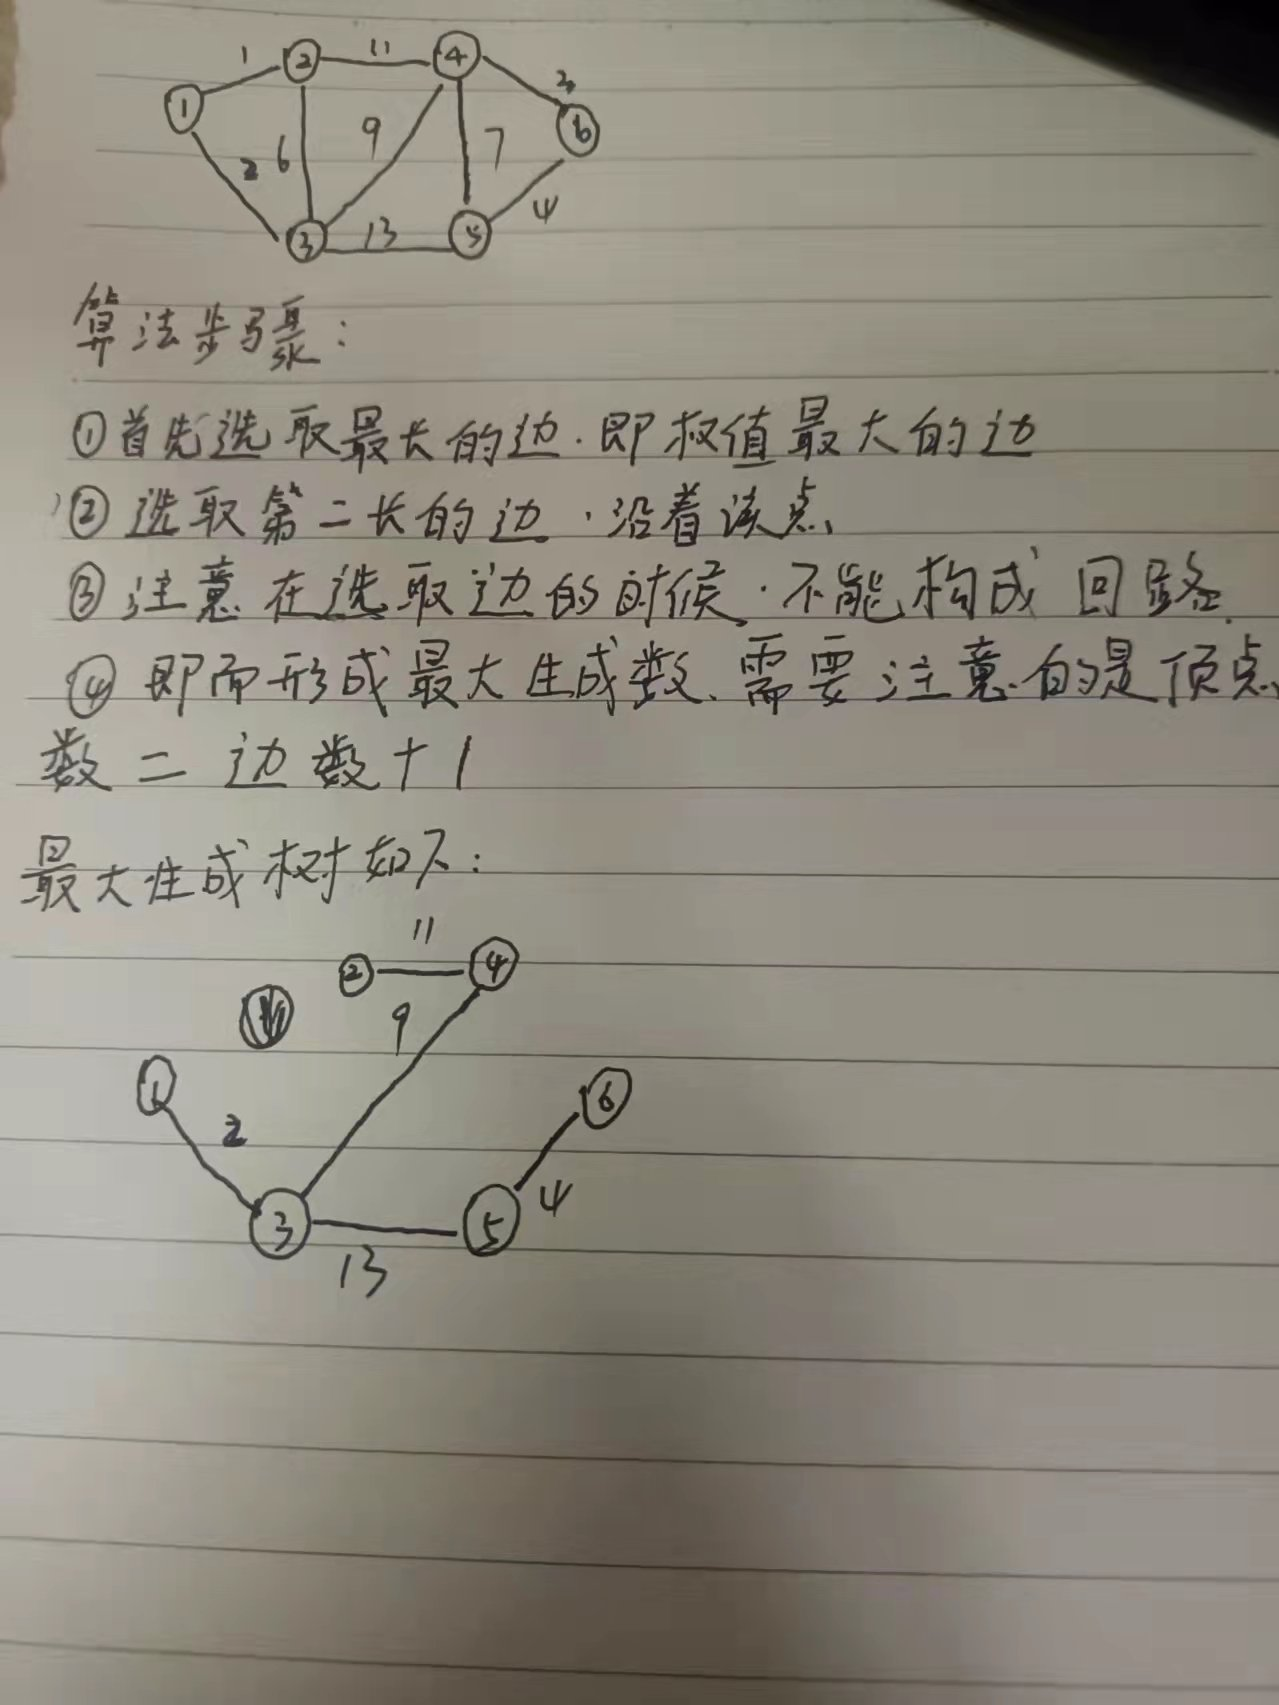 1 2 11 4 3
1 2 6 9 7 6
3 13 5 4
算法步骤：
①首先选取最长的边．即权值最大的边
②选取第二长的边．沿着该点
③注意在选取边的时候．不能构成回路．
④即而形成最大生成数、需要注意的是顶点
数＝边数＋1
最大生成树如下：
11
2 4
9
1 6
2
3 5 4
13